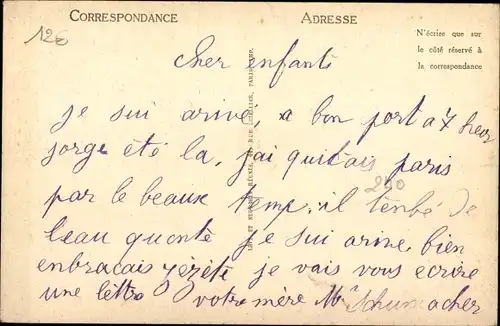 CORRESPONDANCE ADRESSE
12€
N'écrire que sur
le côté réservé à
la correspondance
cher enfants
je sui arivé, a bon port a 7 heur
jorge été la, j'ai quitais paris
par le beaux temp. il tenbé de
l'eau quonte je sui arive bien
enbracais je vais vous ecrire
une lettre votre mère Me Schumacher
240